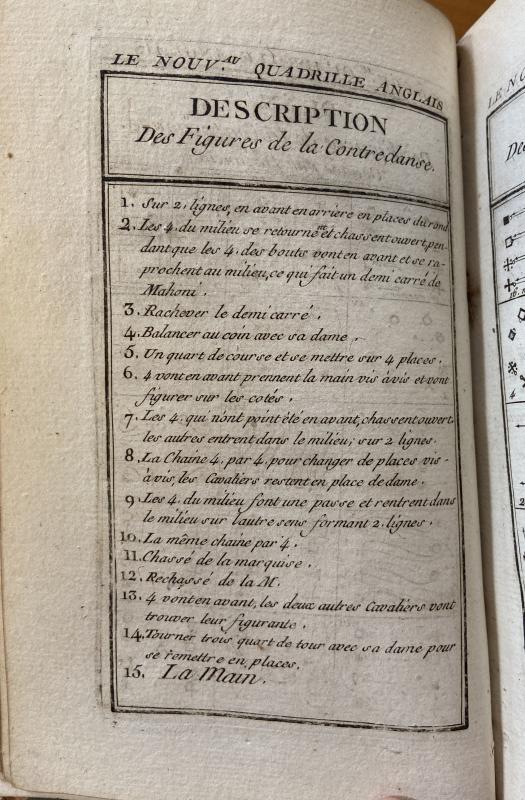 LE NOUV.AU QUADRILLE ANGLAIS
DESCRIPTION
Des Figures de la Contredanse.
1. Sur 2, lignes, en avant en arriere en places du rond
2. Les 4. du milieu se retourne.nt et chassent ouvert, pen-
dant que les 4. des bouts vont en avant et se ra-
prochent au milieu, ce qui fait un demi carré de
Mahoni.
3. Rachever le demi carré.
4. Balancer au coin avec sa dame.
5. Un quart de course et se mettre sur 4 places.
6. 4 vont en avant prennent la main vis àvis et vont
figurer sur les cotés.
7. Les 4. qui n'ont point été en avant, chassent ouvert.
les autres entrent dans le milieu; sur 2 lignes.
8. La Chaine 4. par 4. pour changer de places vis-
àvis, les Cavaliers restent en place de dame.
9. Les 4. du milieu font une passe et rentrent dans
le milieu sur l'autre sens formant 2. lignes.
10. La même chaine par 4.
11. Chassé de la marquise.
12. Rechassé de la M.
13. 4 vont en avant, les deux autres Cavaliers vont
trouver leur figurante.
14. Tourner trois quart de tour avec sa dame pour
se remettre en places.
15. La Main.
LE NO
Des
4
2